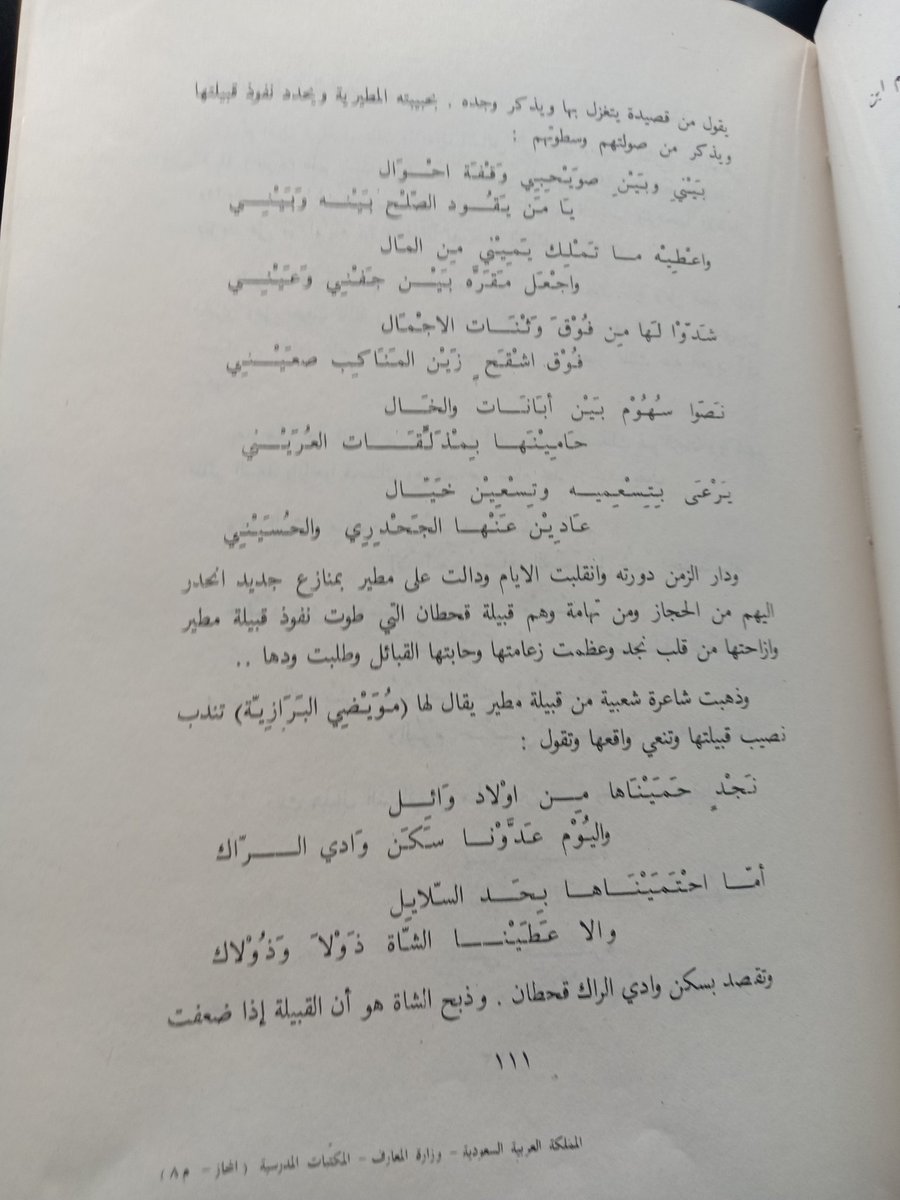 يقول من قصيدة يتغزل بها ويذكر وجده . بحبيبته المطيرية ويحدد نفوذ قبيلتها
ويذكر من صولتهم وسطوتهم :
بَيْنِي وبَيْنِ صويْحِبِي وَقْفَة احْوَال
يَا مَن يَقُود الصّلْح بَيْنه وَبَيْنِي
واعْطِيْه ما تَمْلِك يَمِيْنِي مِن المَال
واجْعَل مَقَرَّه بَيْن جَفْنِي وَعَيْنِي
شدَوّا لَها مِن فُوْقَ وَثْنَات الاجْمَال
فُوْق اشْقَحٍ زَيْن المَنَاكِب صعَيْنِي
نَصَوا سُهُوْم بَيْن أبَانَات والخَال
حَامِيْنَهَا بِمْذَلِّقَات العُرَيْنِي
يَرْعَى بِتِسْعِميه وتِسْعِيْن خَيَّال
عَادِيْن عَنْها الجَحْدِرِي والحُسَيْنِي
ودار الزمن دورته وانقلبت الايام ودالت على مطير بمنازع جديد انحدر
اليهم من الحجاز ومن تهامة وهم قبيلة قحطان التي طوت نفوذ قبيلة مطير
وازاحتها من قلب نجد وعظمت زعامتها وحابتها القبائل وطلبت ودها ..
وذهبت شاعرة شعبية من قبيلة مطير يقال لها (مُوَيْضِي البَرَازِيّة) تندب
نصيب قبيلتها وتنعي واقعها وتقول :
نَجْدٍ حَمَيْنَاها مِن اوْلاد وَائِل
واليُوْم عَدَّوْنا سَكَن وَادي الرّاك
أمّا احْتَمَيْنَاها بِحَد السّلايِل
والا عَطَيْنا الشَّاة ذَوْلاَ وَذُوْلاك
وتقصد بسكن وادي الراك قحطان . وذبح الشاة هو أن القبيلة إذا ضعفت
١١١
المملكة العربية السعودية - وزارة المعارف - المكتبات المدرسية (المجاز - م ٨)
م ابن